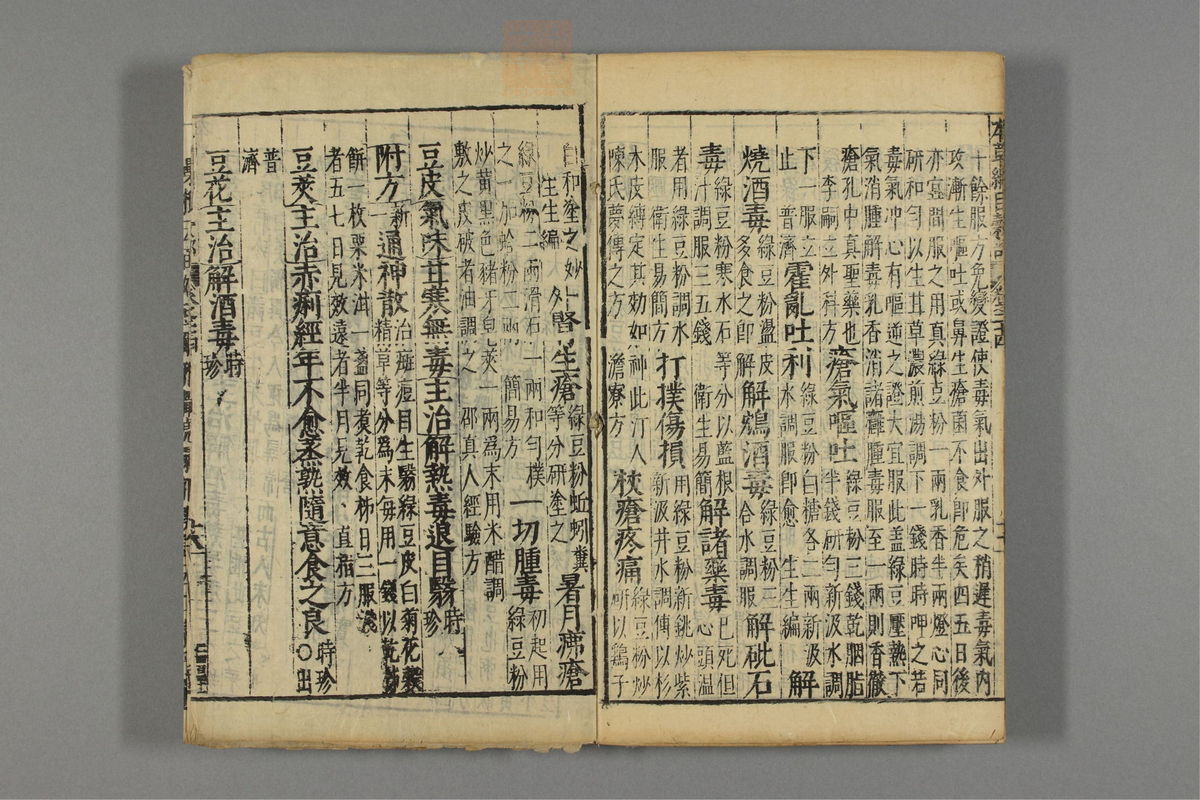 十餘服方免變證使毒氣出外服之稍遲毒氣內
攻漸生嘔吐或鼻生瘡菌不食卽危矣四五日後
亦宜間服之用真綠豆粉一兩乳香半兩燈心同
研和勻以生甘草濃煎湯調下一錢時時呷之若
毒氣冲心有嘔逆之證大宜服此盖綠豆壓熱下
氣消腫解毒乳香消諸癰腫毒服至一兩則香徹
瘡孔中真聖藥也 瘡氣嘔吐 綠豆粉三錢乾胭脂
李嗣立外科方 半錢研勻新汲水調
下一服立 霍亂吐利 綠豆粉白糖各二兩新汲 解
止 普濟 水調服卽愈 生生編
燒酒毒 綠豆粉盪皮 解鴆酒毒 綠豆粉三 解砒石
多食之卽解 合水調服
毒 綠豆粉寒水石等分以藍根 解諸藥毒 已死但
汁調服三五錢 衛生易簡 心頭温
者用綠豆粉調水 打撲傷損 用綠豆粉新銚炒紫
服 衛生易簡方 新汲井水調傅以杉
木皮縛定其効如神此汀人 杖瘡疼痛 綠豆粉炒
陳氏夢傳之方 澹寮方 研以鷄子
白和塗之妙 外腎生瘡 綠豆粉蚯蚓糞 暑月痱瘡
生生編 等分研塗之
綠豆粉二兩滑石一兩和勻撲 一切腫毒 初起用
之一加蛤粉二兩 簡易方 綠豆粉
炒黃黑色豬牙皂莢一兩爲末用米醋調
敷之皮破者油調之 邵真人經驗方
豆皮氣味甘寒無毒主治解熱毒退目翳 時珍
附方 新一 通神散 治癍痘目生翳綠豆皮白菊花榖
精草等分爲末每用一錢以乾柹
餅一枚粟米泔一盞同煮乾食柹日三服淺
者五七日見效遠者半月見效 直指方
豆莢主治赤痢經年不愈蒸熟隨意食之良 時珍○出
普濟
豆花主治解酒毒 時珍